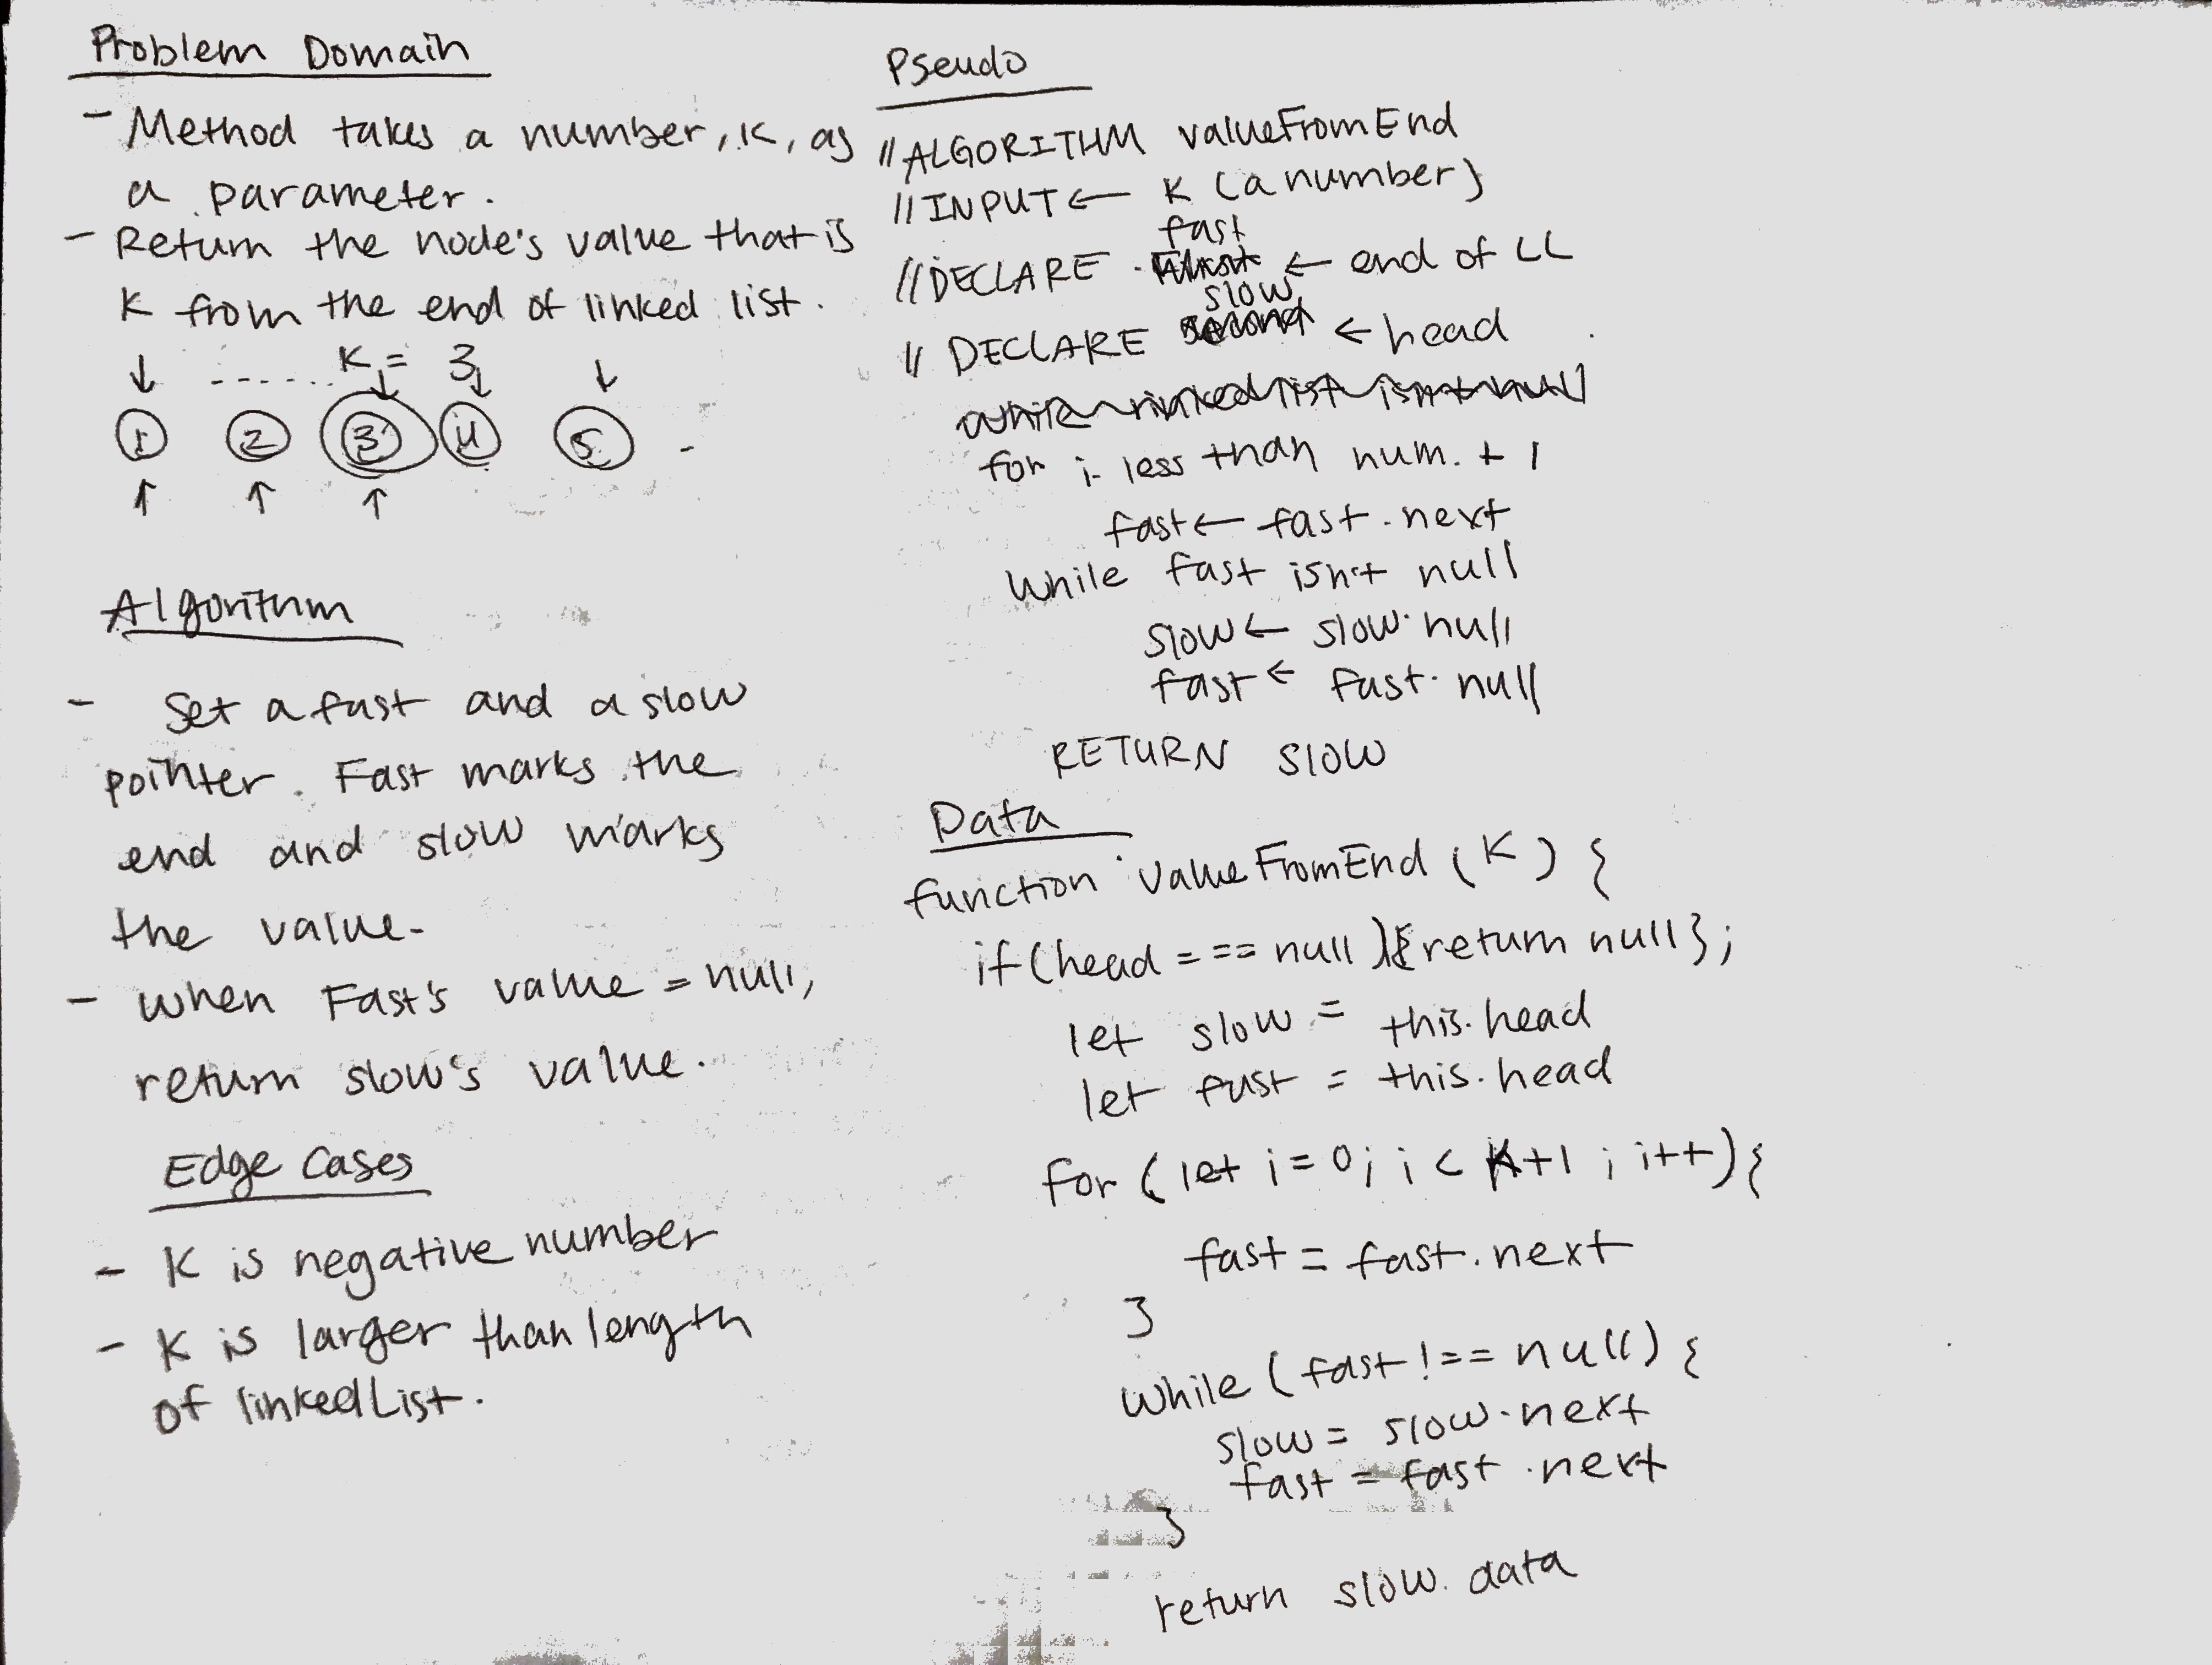 Problem Domain
- Method takes a number, K, as
a parameter.
- Return the node's value that is
K from the end of linked list.
K = 3
1 2 3 4 5
Algorithm
- Set a fast and a slow
pointer. Fast marks the
end and slow marks
the value.
- when Fast's value = null,
return slow's value.
Edge Cases
- K is negative number
- K is larger than length
of linkedList.
Pseudo
// ALGORITHM valueFromEnd
// INPUT ← K (a number)
fast
// DECLARE ← end of LL
slow
// DECLARE second ← head
while linked list isn't null
for i less than num. + 1
fast ← fast.next
while fast isn't null
slow ← slow.null
fast ← fast.null
RETURN slow
Data
function valueFromEnd (K) {
if (head === null){return null};
let slow = this.head
let fast = this.head
for (let i=0; i < K+1 ; i++){
fast = fast.next
}
while (fast !== null) {
slow = slow.next
fast = fast.next
}
return slow.data